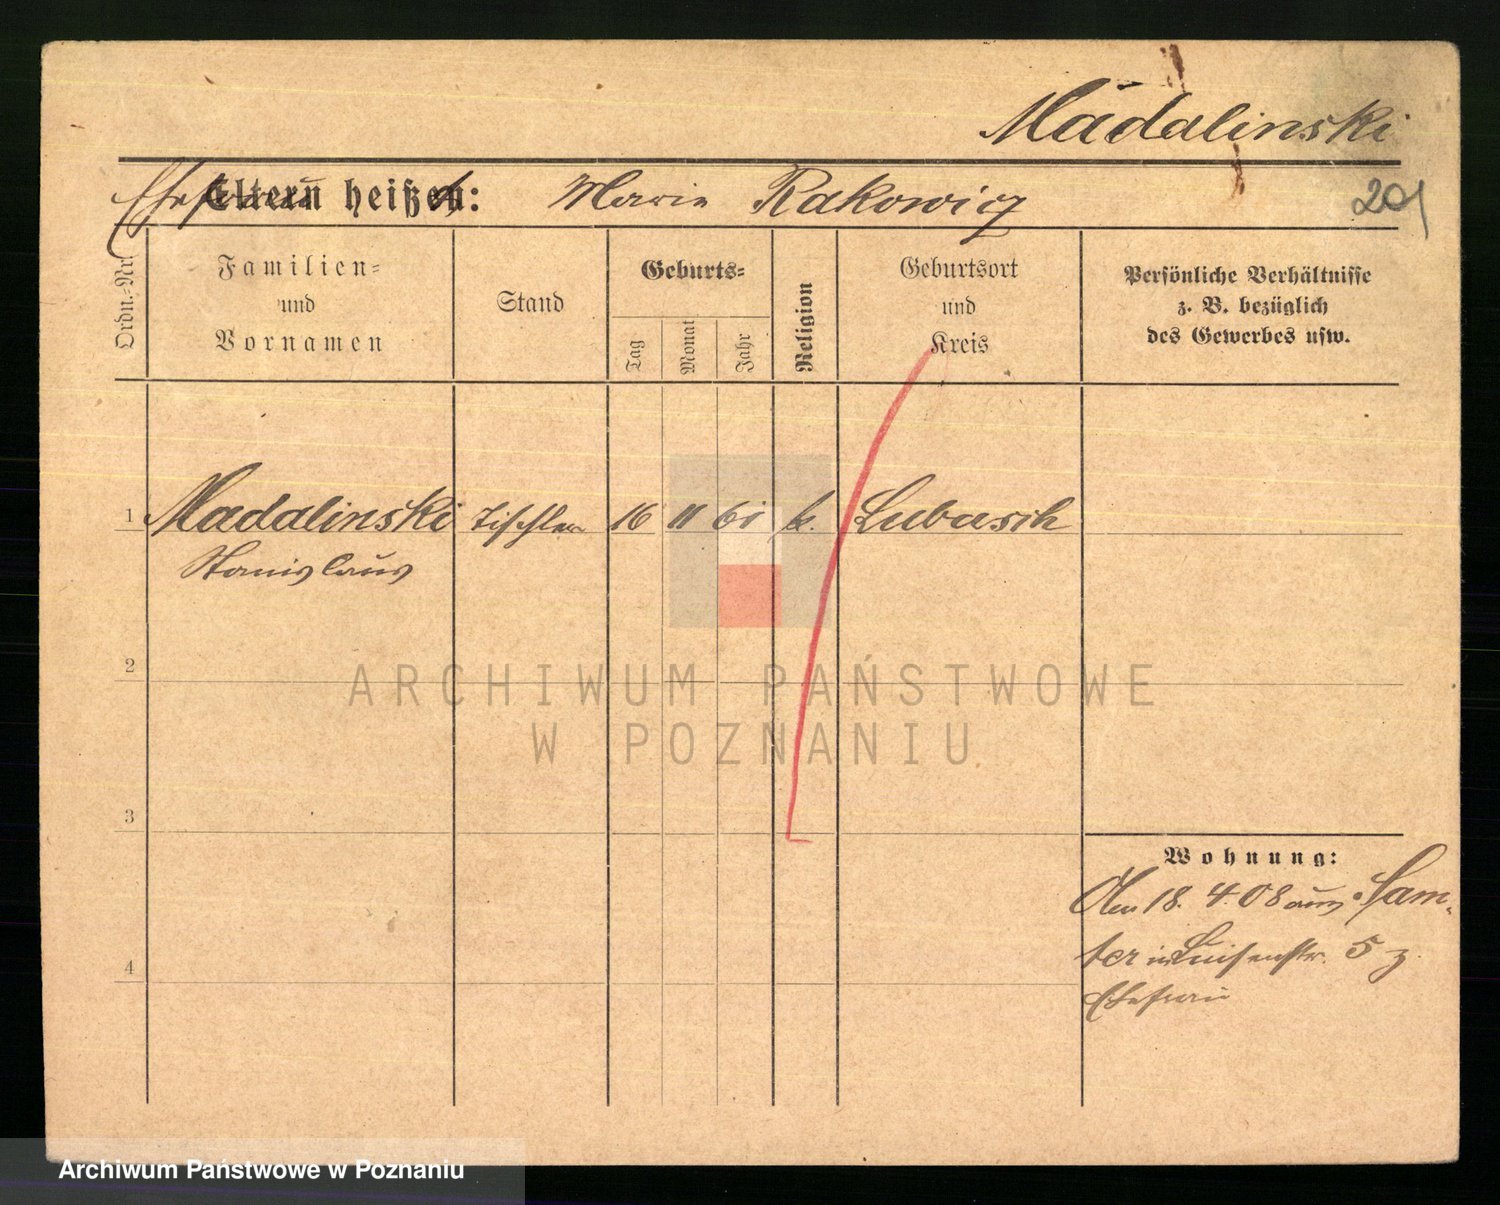 Madalinski
Eltern heißen:
Ehefrau
Marie Rakowicz
201
Ordn.-Nr.
Familien-
und
Vornamen
Stand
Geburts-
Tag
Monat
Jahr
Religion
Geburtsort
und
Kreis
Persönliche Verhältnisse
z. B. bezüglich
des Gewerbes usw.
1 Madalinski Tischler 16 11 61 k. Lubasch
Stanislaus
2
3
4
Wohnung:
Am 18. 4. 08 aus Sam-
ter in Luisenstr. 5 z.
Ehefrau
ARCHIWUM PAŃSTWOWE
W POZNANIU
Archiwum Państwowe w Poznaniu